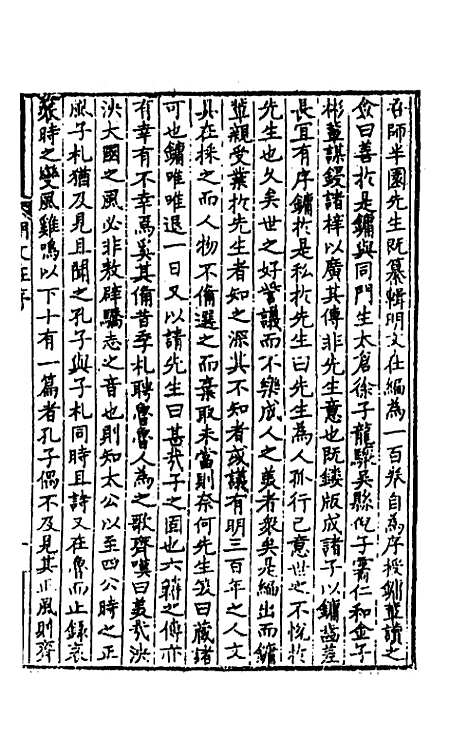 吾師半園先生既纂輯明文在編為一百卷自為序授鏞軰讀之
僉曰善於是鏞與同門生太倉徐子龍驤吳縣倪子霱仁和金子
彬軰謀鋟諸梓以廣其傳非先生意也既鏤版成諸子以鏞齒差
長宜有序鏞於是私於先生曰先生為人孤行己意世之不悅於
先生也久矣世之好訾議而不樂成人之美者衆矣是編出而鏞
軰親受業於先生者知之深其不知者或議有明三百年之人文
具在採之而人物不備選之而棄取未當則奈何先生笑曰藏諸
可也鏞唯唯退一日又以請先生曰甚哉子之固也六籍之傳亦
有幸有不幸焉奚其備昔季札聘魯魯人為之歌齊嘆曰美哉泱
泱大國之風必非敖辟驕志之音也則知太公以至四公時之正
風子札猶及見且聞之孔子與子札同時且詩又在魯而止錄哀
襄時之變風雞鳴以下十有一篇者孔子偶不及見其正風則齊
明文在序
一